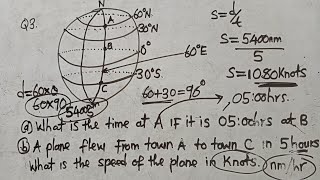 Q3.
N
60°N
30°N
0°
60°E
30°S
A
B
C
S = d/t
S = 5400nm
5
S = 1080Knots
d = 60×θ
60×90
5400nm
60+30 = 90°
05:00hrs.
(a) What is the time at A IF it is 05:00hrs at B
(b) A plane flew from town A to town C in 5 hours
What is the speed of the plane in Knots. (nm/hr)